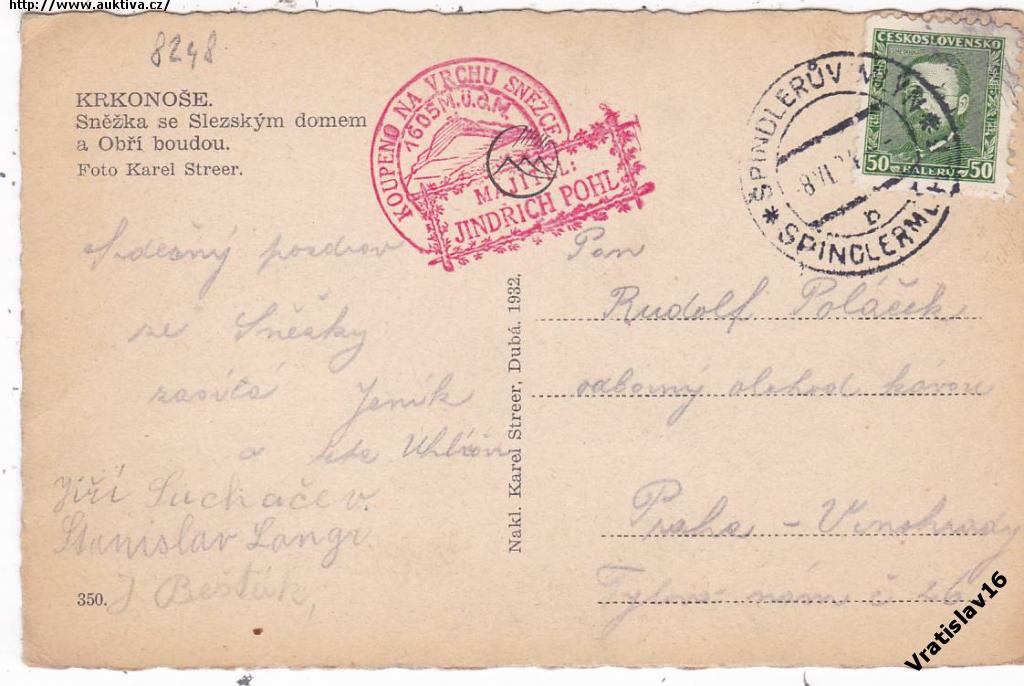 http://www.auktiva.cz/
8248
KRKONOŠE.
Sněžka se Slezským domem
a Obří boudou.
Foto Karel Streer.
KOUPENO NA VRCHU SNĚŽCE
1605 M.ü.d.M.
MAJITEL:
JINDRICH POHL
ČESKOSLOVENSKO
50 HALERU 50
SPINDLERŮV MLÝN
8 VI
b
SPINDLERMÜ
Srdečný pozdrav
ze Sněžky
zasílá Jeník
a
Jiří Sucháček v.
Stanislav Langr.
J Bešťák,
350.
Nakl. Karel Streer, Dubá. 1932.
Pan
Rudolf Poláček
odborný obchod kávou
Praha - Vinohrady
Tylovo nám č 26
Vratislav16